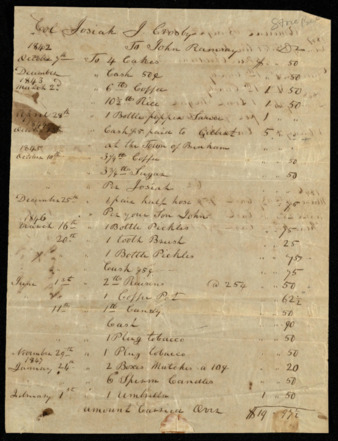 Col Josiah J Crosby
To John Dr
1842
October 7th To 4 Cakes " 50
December " Cash 50¢ " 50
1843
March 2d " 6 lb Coffee 1 " 50
10½ lb Rice 1 " 50
April 28th 1 Bottle pepper Sauce 1
Cash pd paid to 5
at the Town of Brenham
1845
October 10th 3¾ lb Coffee 50
3¾ lb Sugar 50
Per Josiah
December 25th 1 pair half hose 75
1846 " Per your Son John
March 16th " 1 Bottle Pickles 95
20th " 1 Tooth Brush 25
" 1 Bottle Pickles
Cash 75¢ 75
June 1st " 2 lb Raisins @ 25¢ 50
" 1 Coffee Pot 62½
11th " 1 lb Candy 50
Cash 90
" 1 Plug tobacco 50
November 29th " 1 Plug tobacco 50
1847
January 24th " 2 Boxes Matches a 10¢ 20
6 Sperm Candles 50
February 1st " 1 Umbrella 1 50
amount Carried Over $19